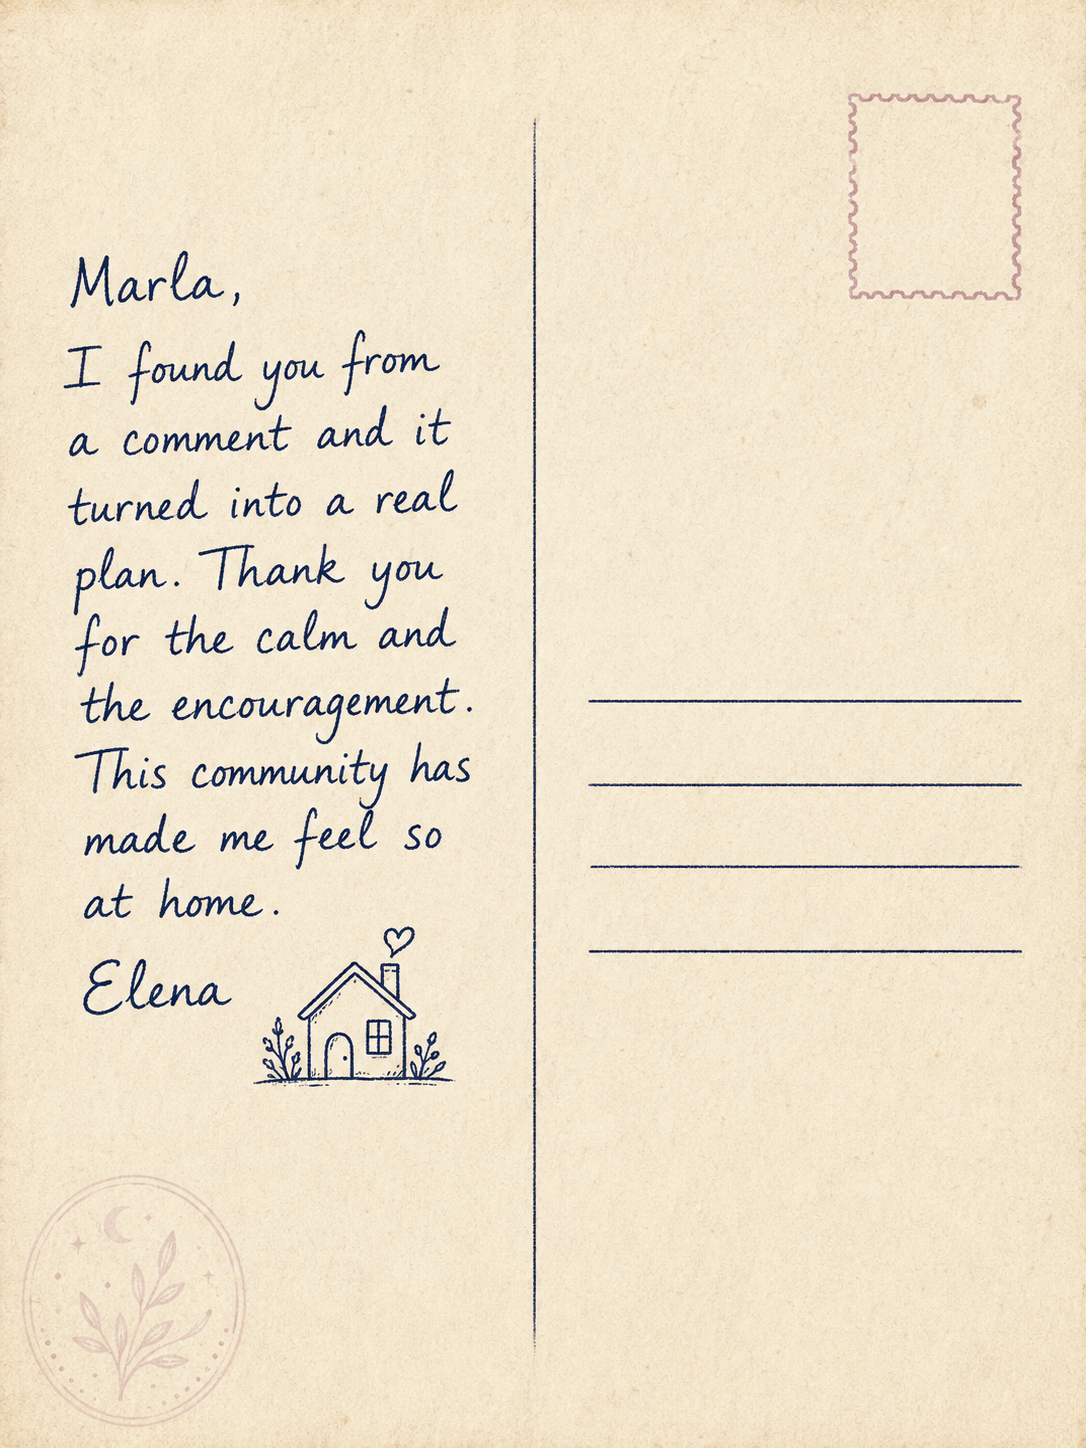 Marla,
I found you from
a comment and it
turned into a real
plan. Thank you
for the calm and
the encouragement.
This community has
made me feel so
at home.
Elena